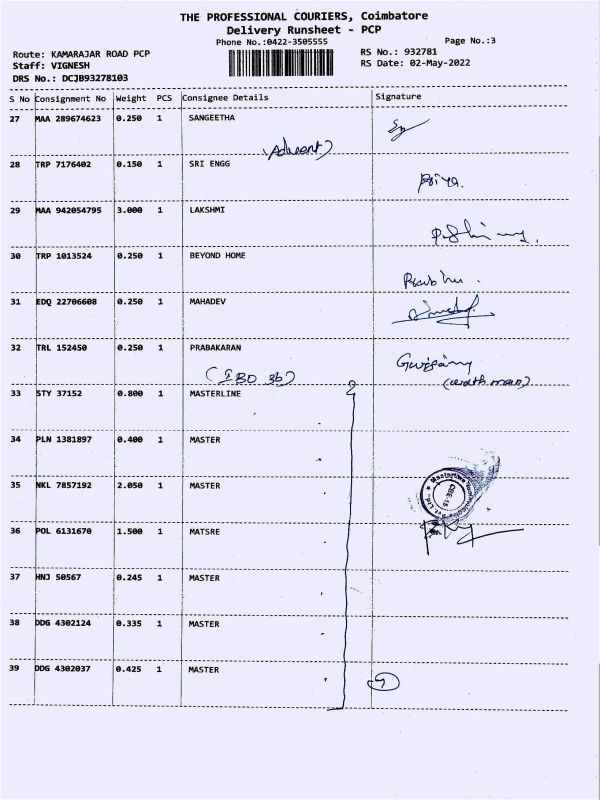 THE PROFESSIONAL COURIERS, Coimbatore
Delivery Runsheet - PCP
Phone No.:0422-3505555
Page No.:3
Route: KAMARAJAR ROAD PCP
RS No.: 932781
Staff: VIGNESH
RS Date: 02-May-2022
DRS No.: DCJB93278103
S No Consignment No Weight PCS Consignee Details Signature
27 MAA 289674623 0.250 1 SANGEETHA
(Advent)
28 TRP 7176402 0.150 1 SRI ENGG
Priya.
29 MAA 942054795 3.000 1 LAKSHMI
30 TRP 1013524 0.250 1 BEYOND HOME
Prabhu.
31 EDQ 22706608 0.250 1 MAHADEV
32 TRL 152450 0.250 1 PRABAKARAN
(IBD 36)
33 STY 37152 0.800 1 MASTERLINE
34 PLN 1381897 0.400 1 MASTER
35 NKL 7857192 2.050 1 MASTER
36 POL 6131670 1.500 1 MATSRE
37 HNJ 50567 0.245 1 MASTER
38 DDG 4302124 0.335 1 MASTER
39 DDG 4302037 0.425 1 MASTER
7